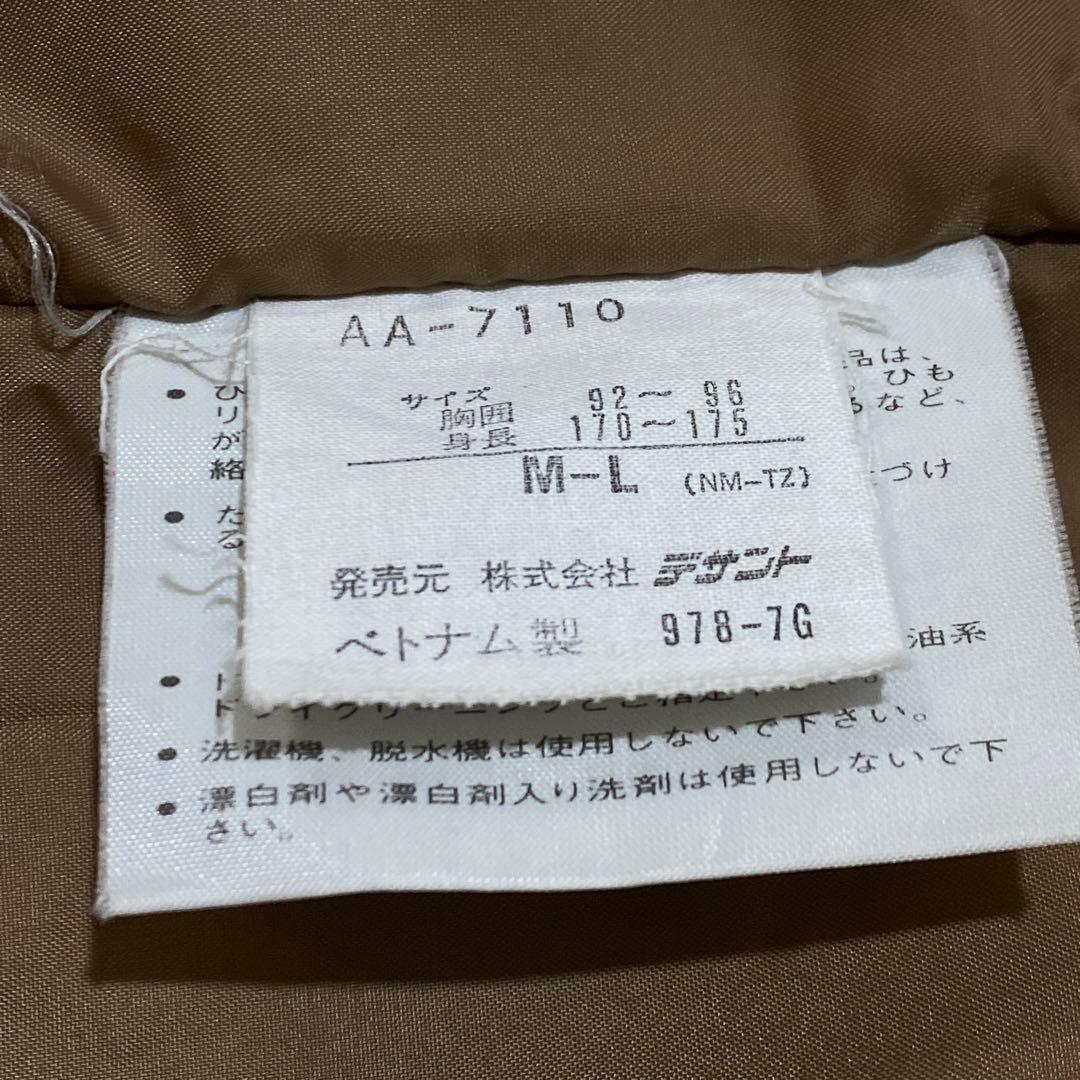 AA-7110
サイズ
胸囲 92～96
身長 170～175
M-L (NM-TZ)
発売元 株式会社 デサント
ベトナム製 978-7G
品は、
• ひ 。ひも
り るなど、
が
絡 づけ
• た
る
油系
•
• 洗濯機、脱水機は使用しないで下さい。
• 漂白剤や漂白剤入り洗剤は使用しないで下
さい。